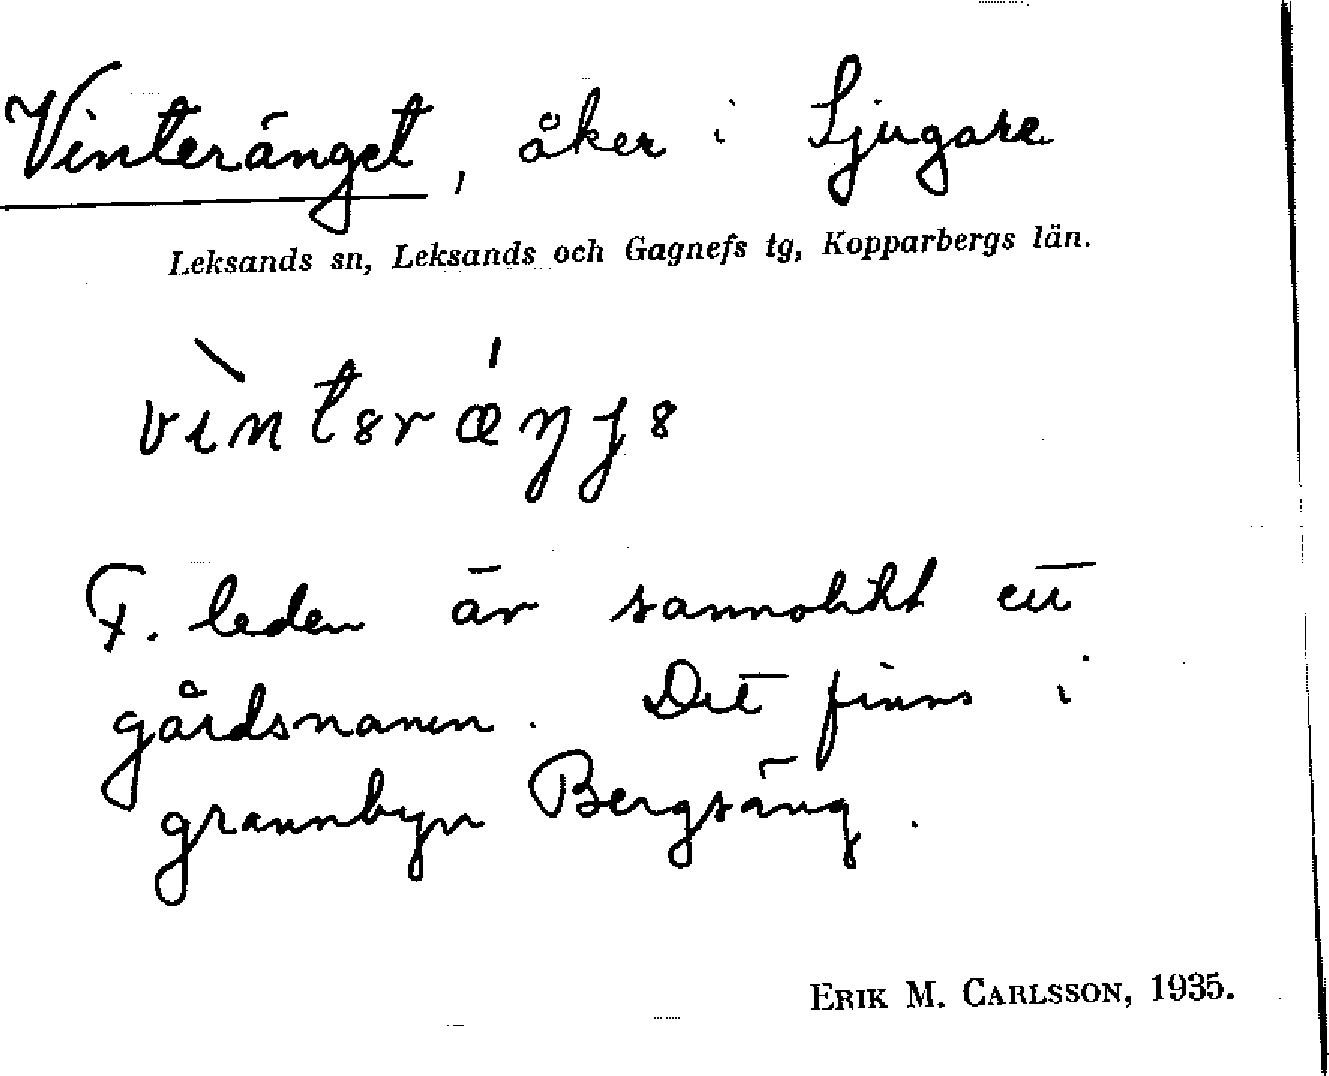 Vinteränget, åker i Ljugare
Leksands sn, Leksands och Gagnefs tg, Kopparbergs län.
F. leden är sannolikt ett
gårdsnamn. Det finns i
grannbyn Bergsäng.
ERIK M. CARLSSON, 1935.